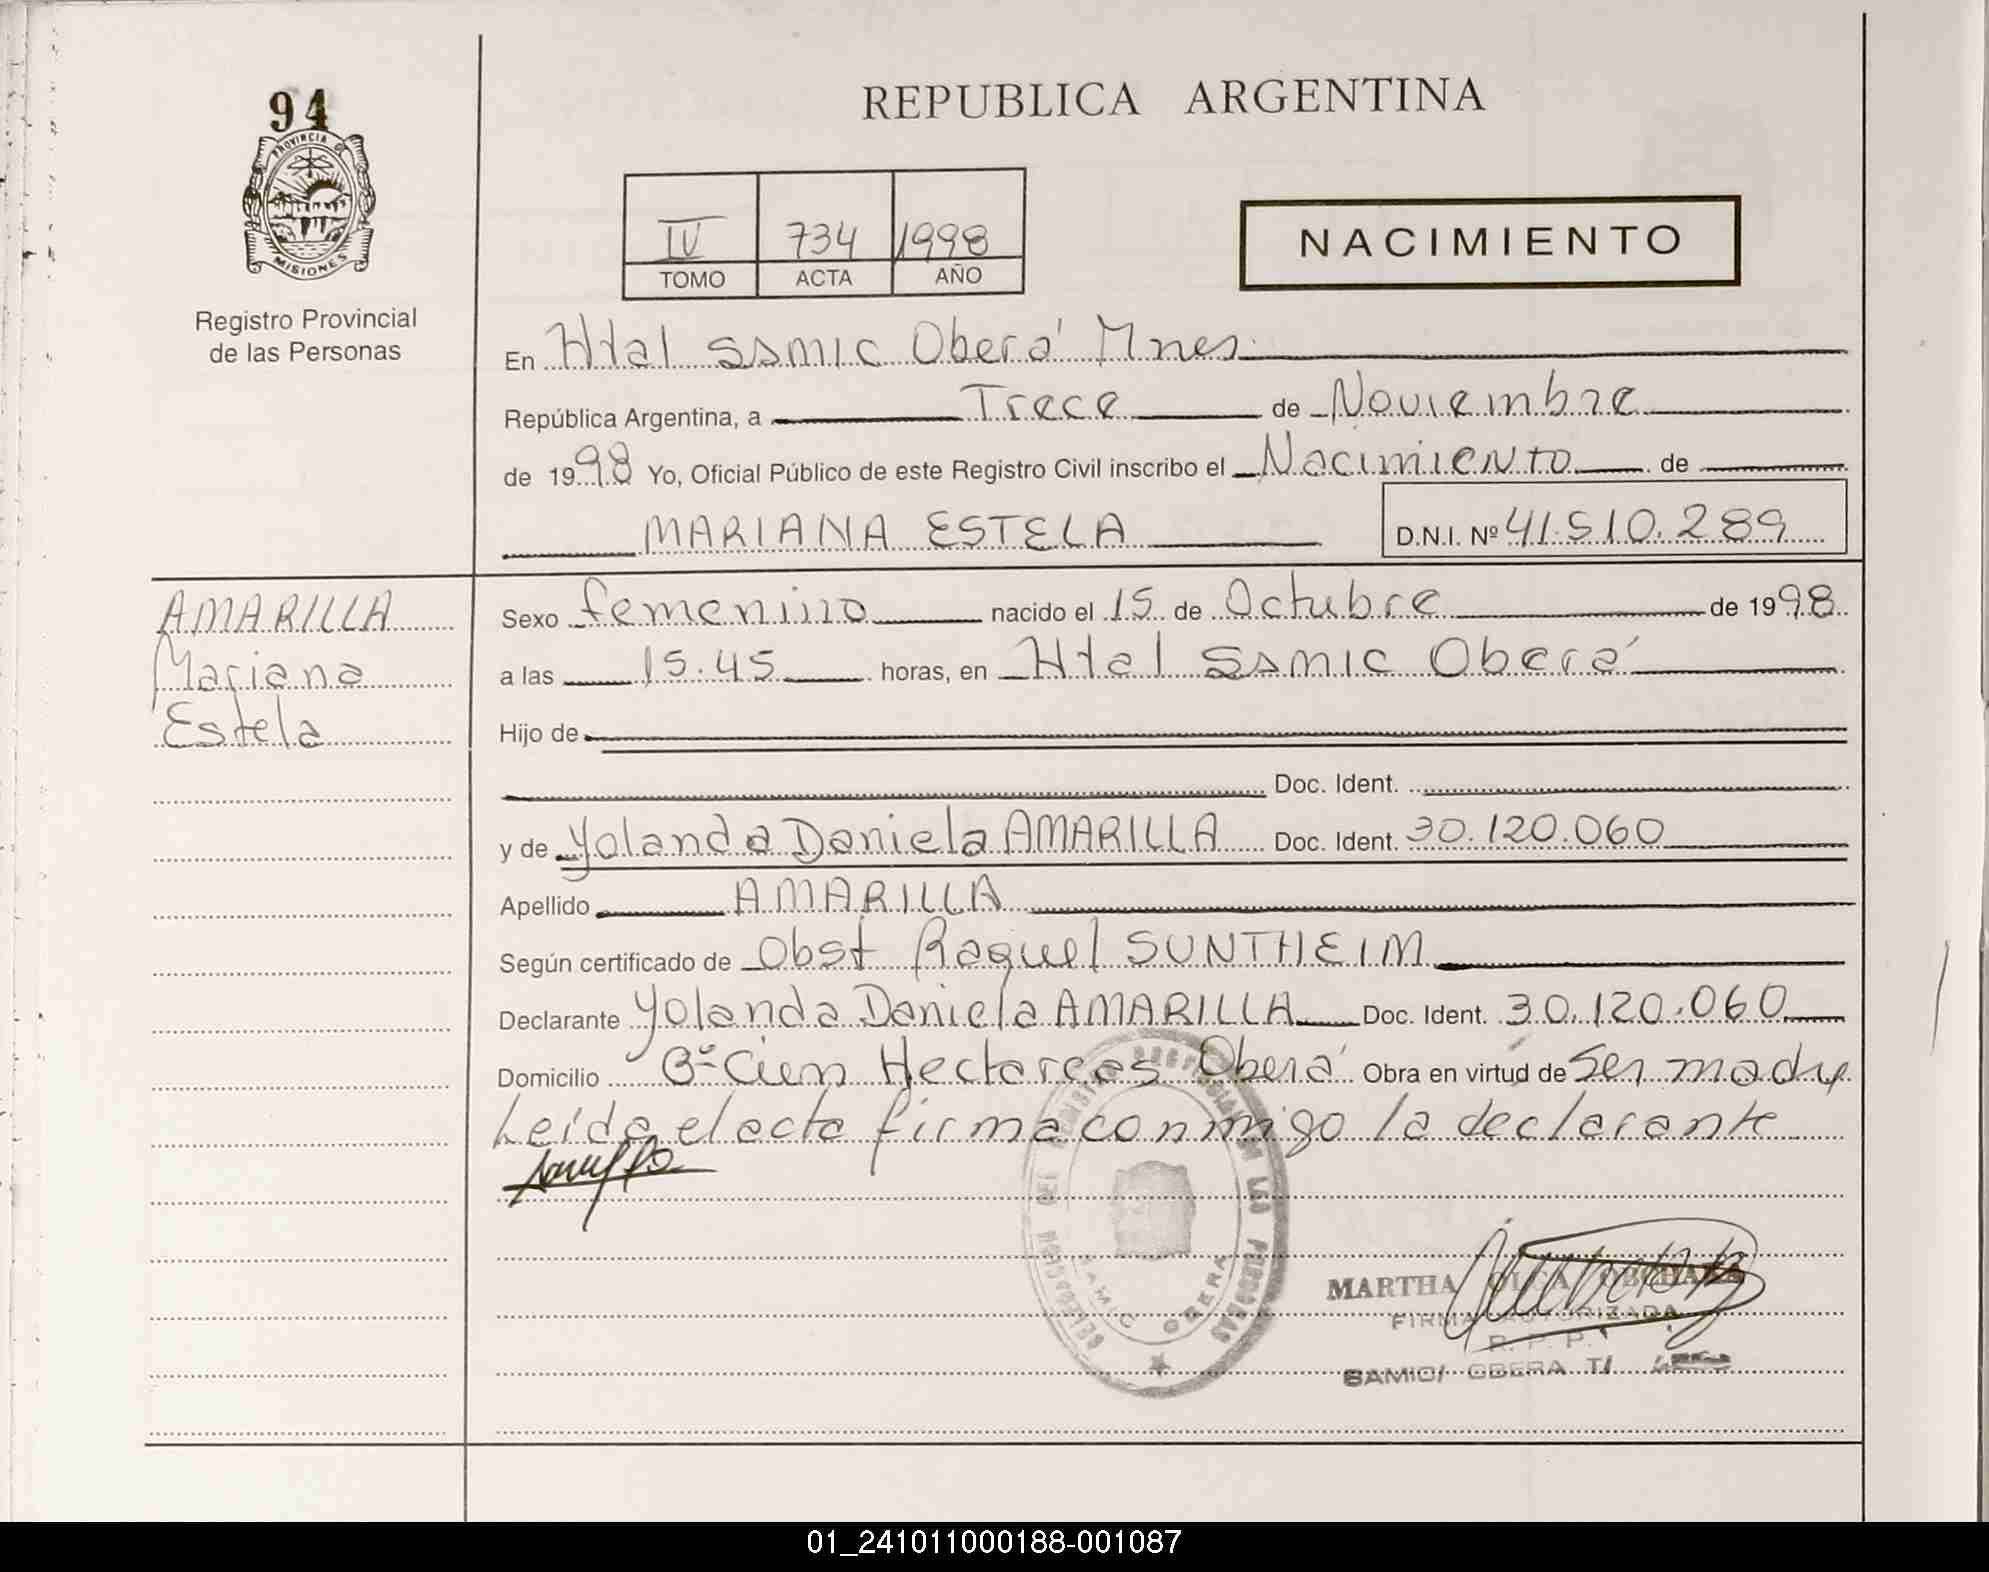 94
PROVINCIA DE
MISIONES
Registro Provincial
de las Personas
REPUBLICA ARGENTINA
IV 734 1998
TOMO ACTA AÑO
NACIMIENTO
En Htal SSMIC Oberá Mnes.
República Argentina, a Trece de Noviembre
de 1998 Yo, Oficial Público de este Registro Civil inscribo el Nacimiento de
MARIANA ESTELA D.N.I. Nº 41.510.289
AMARILLA
Mariana
Estela
Sexo femenino nacido el 15 de Octubre de 1998
a las 15.45 horas, en Htal SSMIC Oberá
Hijo de
Doc. Ident.
y de Yolanda Daniela AMARILLA Doc. Ident. 30.120.060
Apellido AMARILLA
Según certificado de Obst Raquel SUNTHEIM
Declarante Yolanda Daniela AMARILLA Doc. Ident. 30.120.060
Domicilio Bº Cien Hectareas Oberá Obra en virtud de Ser madre
Leída el acta firma conmigo la declarante
DE LAS PERSONAS
SAMIC OBERA
MARTHA OLGA
FIRMA AUTORIZADA
R. P. P.
SAMIC/ OBERA T/
01_241011000188-001087